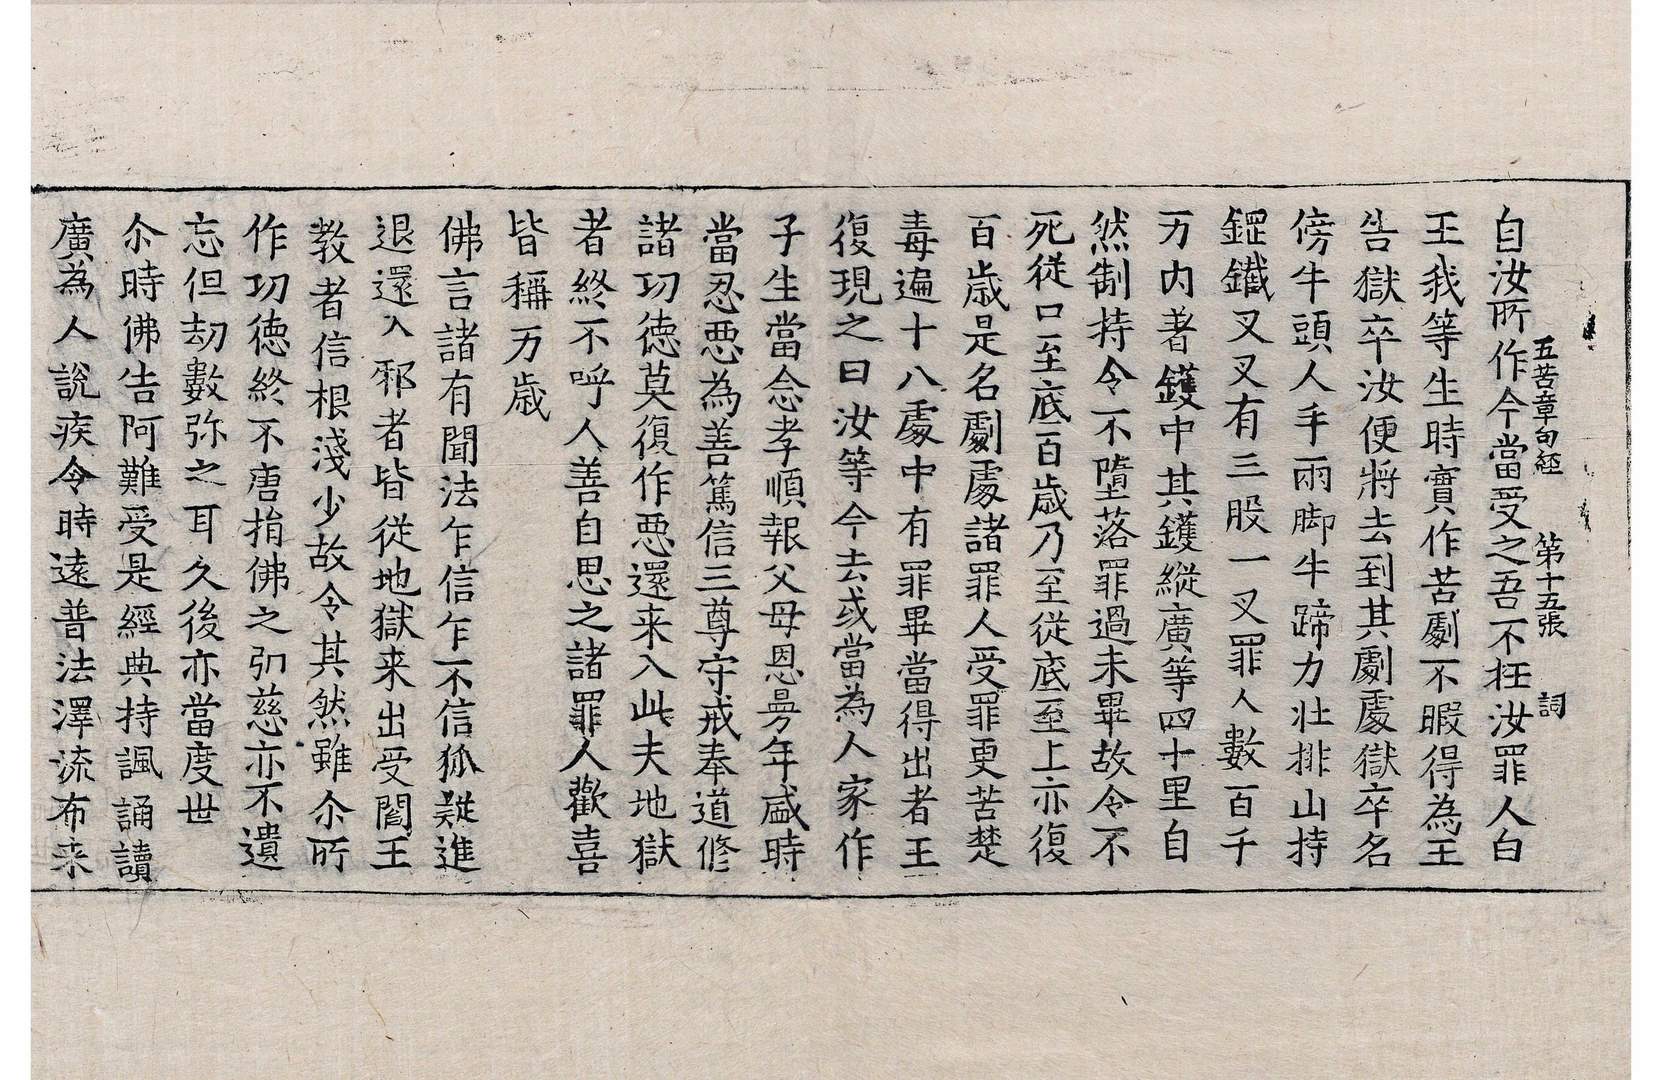 五苦章句經 第十五張 詞
自汝所作今當受之吾不抂汝罪人白
王我等生時實作苦劇不暇得為王
告獄卒汝便將去到其劇處獄卒名
傍牛頭人手兩脚牛蹄力壮排山持
鋼鐵叉叉有三股一叉罪人數百千
万內著鑊中其鑊縱廣等四十里自
然制持令不墮落罪過未畢故令不
死從口至底百歲乃至從底至上亦復
百歲是名劇處諸罪人受罪更苦楚
毒遍十八處中有罪畢當得出者王
復現之曰汝等今去或當為人家作
子生當念孝順報父母恩曼年盛時
當忍惡為善篤信三尊守戒奉道修
諸功德莫復作惡還来入此夫地獄
者終不呼人善自思之諸罪人歡喜
皆稱万歲
佛言諸有聞法乍信乍不信狐疑進
退還入邪者皆從地獄来出受閻王
教者信根淺少故令其然雖尒所
作功德終不唐捐佛之弘慈亦不遺
忘但劫數弥之耳久後亦當度世
尒時佛告阿難受是經典持諷誦讀
廣為人說疾令時遠普法澤流布来